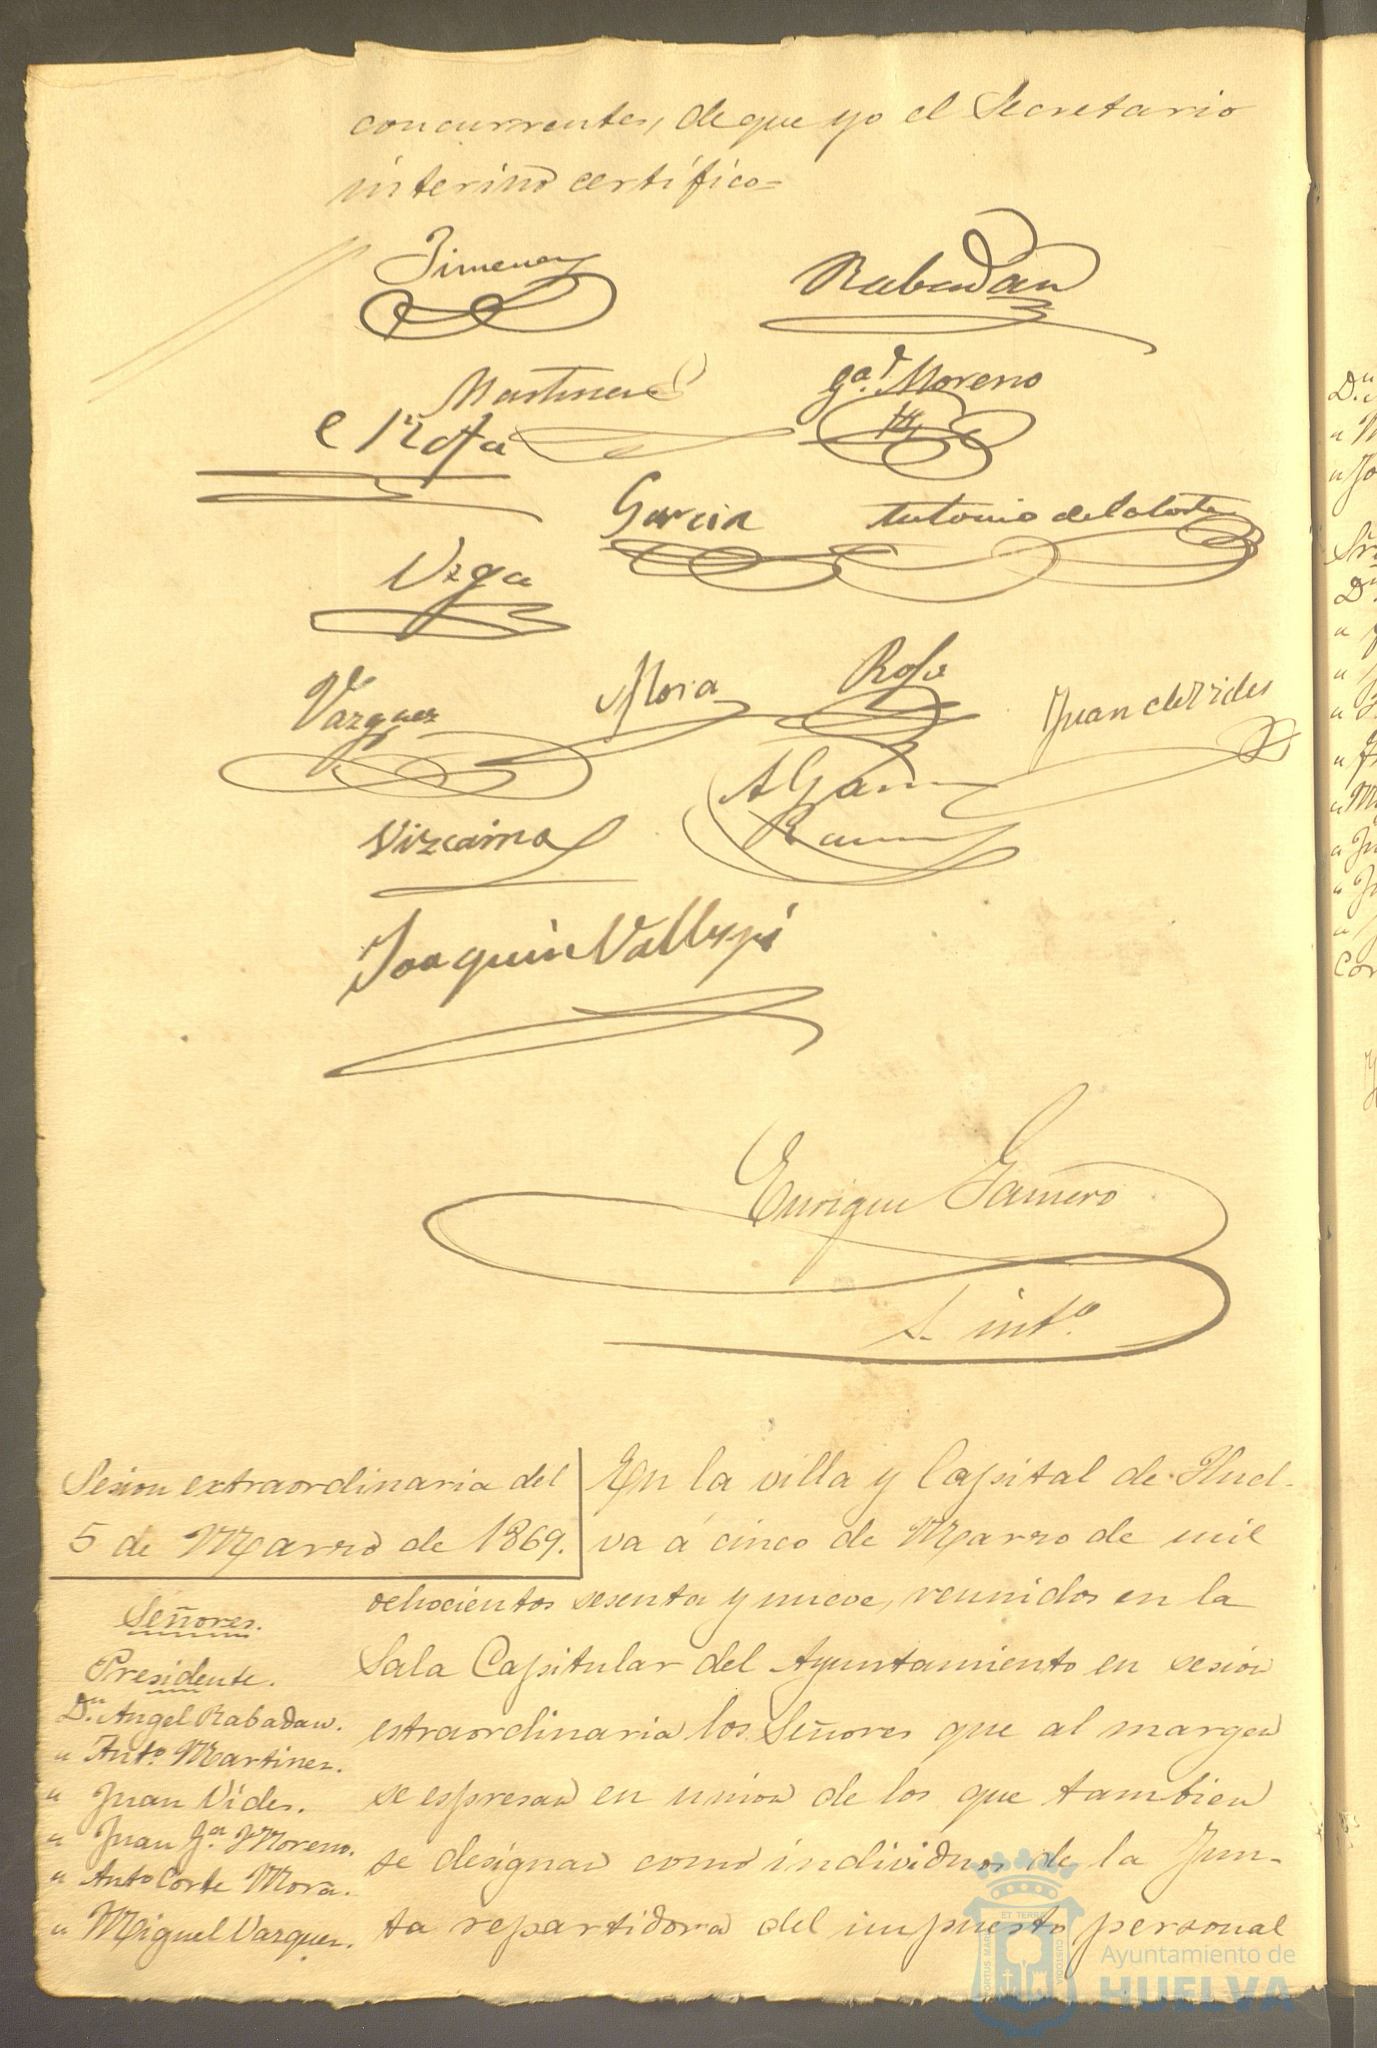 concurrentes, de que yo el Secretario
interino certifico=
Jimenez
Rabadan
Martinez
Ga. Moreno
Garcia
Antonio de la Corte
Vega
Vazquez
Mora
Juan de Vides
A Garcia
Ramos
Vizcaino
Joaquin Vallespi
Enrique Gamero
S. into.
Sesion extraordinaria del
5 de Marzo de 1869.
Señores.
Presidente.
Dn. Angel Rabadan.
" Anto. Martinez.
" Juan Vides.
" Juan Ga. Moreno.
" Anto Corte Mora.
" Miguel Vazquez.
En la villa y Capital de Huel-
va á cinco de Marzo de mil
ochocientos sesenta y nueve, reunidos en la
Sala Capitular del Ayuntamiento en sesion
estraordinaria los Señores que al margen
se espresan en union de los que tambien
se designan como individuos de la Jun-
ta repartidora del impuesto personal
Ayuntamiento de
HUELVA